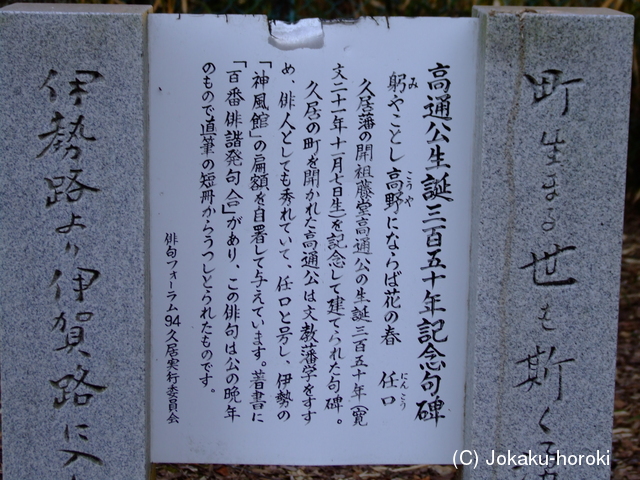 町生まる世も斯く
高通公生誕三百五十年記念句碑
躬やことし高野にならば花の春　任口
み
こうや
にんこう
久居藩の開祖藤堂高通公の生誕三百五十年(寛
文二十一年十一月七日生)を記念して建てられた句碑。
久居の町を開かれた高通公は文教藩学をすす
め、俳人としても秀れていて、任口と号し、伊勢の
「神風館」の扁額を自署して与えています。著書に
「百番俳諧発句合」があり、この俳句は公の晩年
のもので直筆の短冊からうつしとられたものです。
俳句フォーラム94久居実行委員会
伊勢路より伊賀路に入
(C) Jokaku-horoki